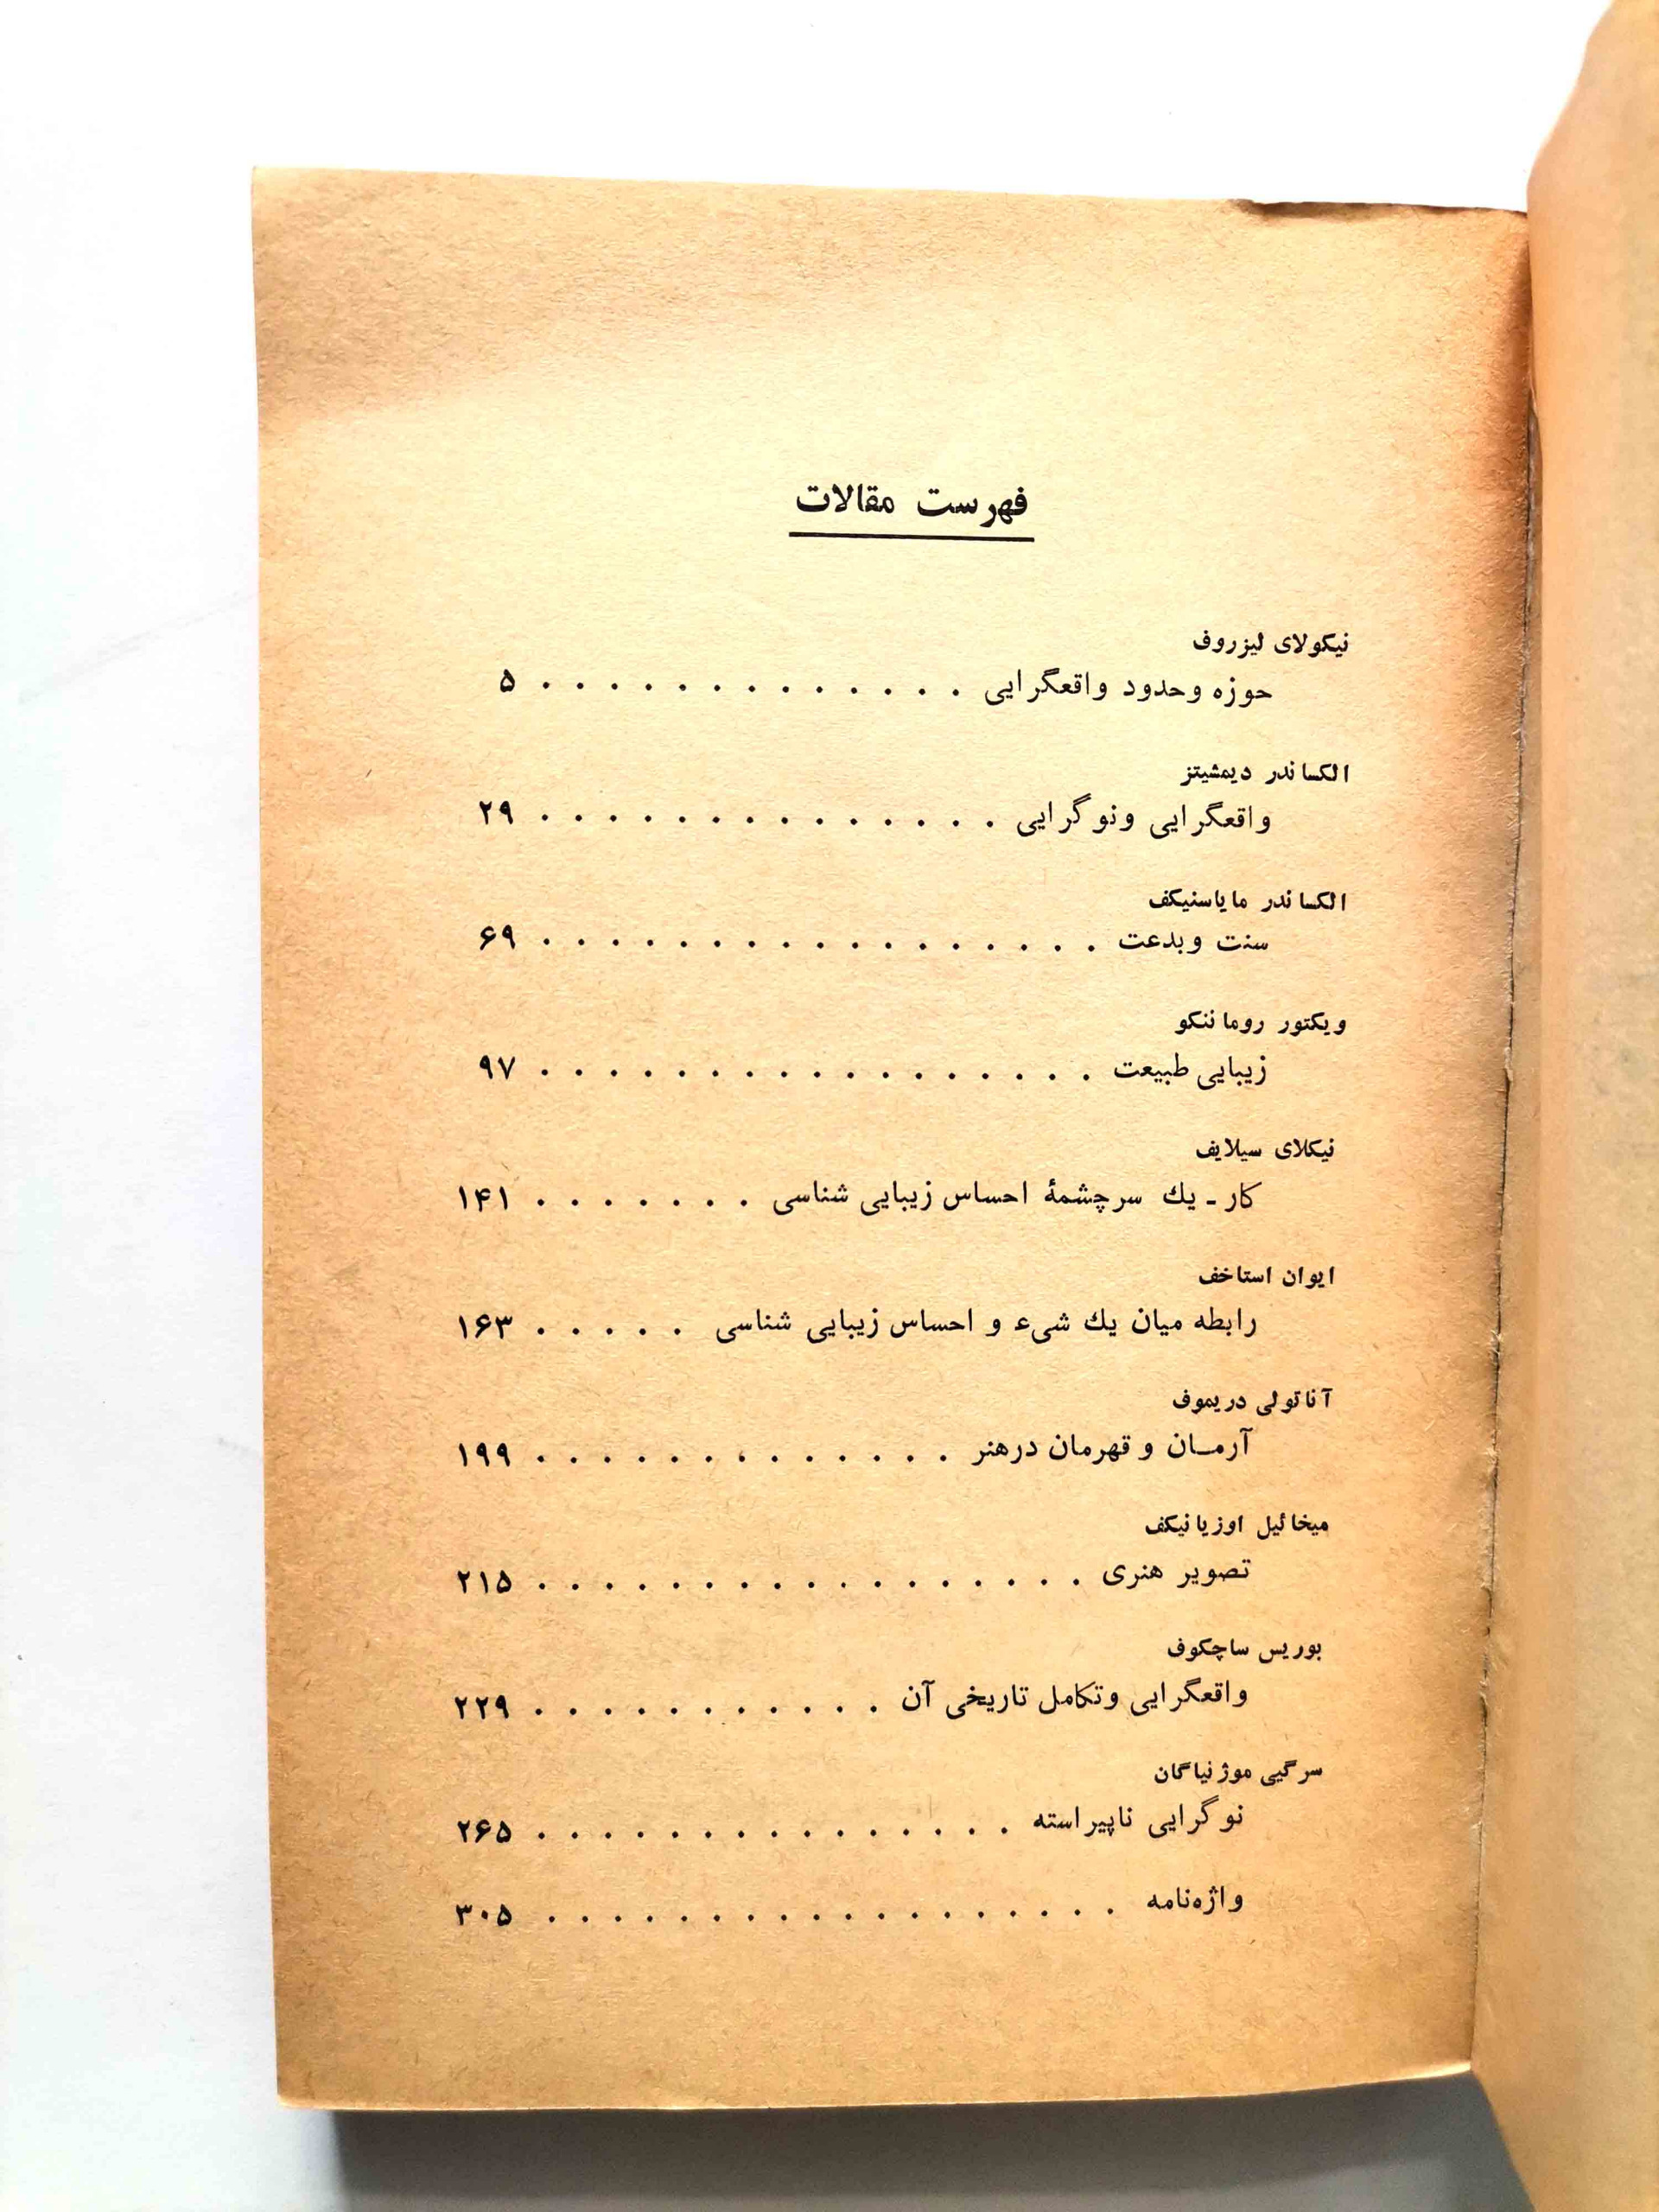 فهرست مقالات
نیکولای لیزروف
حوزه وحدود واقعگرایی . . . . . . . . . . . . . ۵
الکساندر دیمشیتز
واقعگرایی ونوگرایی . . . . . . . . . . . . . . ۲۹
الکساندر مایاسنیکف
سنت وبدعت . . . . . . . . . . . . . . . . . ۶۹
ویکتور روماننکو
زیبایی طبیعت . . . . . . . . . . . . . . . . . ۹۷
نیکلای سیلایف
کار ـ یك سرچشمهٔ احساس زیبایی شناسی . . . . . . . ۱۴۱
ایوان استاخف
رابطه میان یك شیء و احساس زیبایی شناسی . . . . . ۱۶۳
آناتولی دریموف
آرمــان و قهرمان درهنر . . . . . . . . . . . . . ۱۹۹
میخائیل اوزیانیکف
تصویر هنری . . . . . . . . . . . . . . . . . ۲۱۵
بوریس ساچکوف
واقعگرایی وتکامل تاریخی آن . . . . . . . . . . . ۲۲۹
سرگیی موژنیاگان
نوگرایی ناپیراسته . . . . . . . . . . . . . . . ۲۶۵
واژه‌نامه . . . . . . . . . . . . . . . . . . ۳۰۵